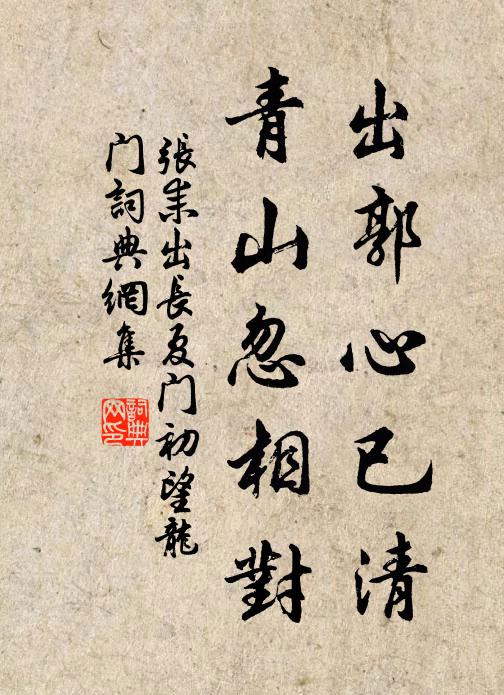 出郭心已清
青山忽相對
張耒出長夏门初望龍
门詞典網集
詞典網印